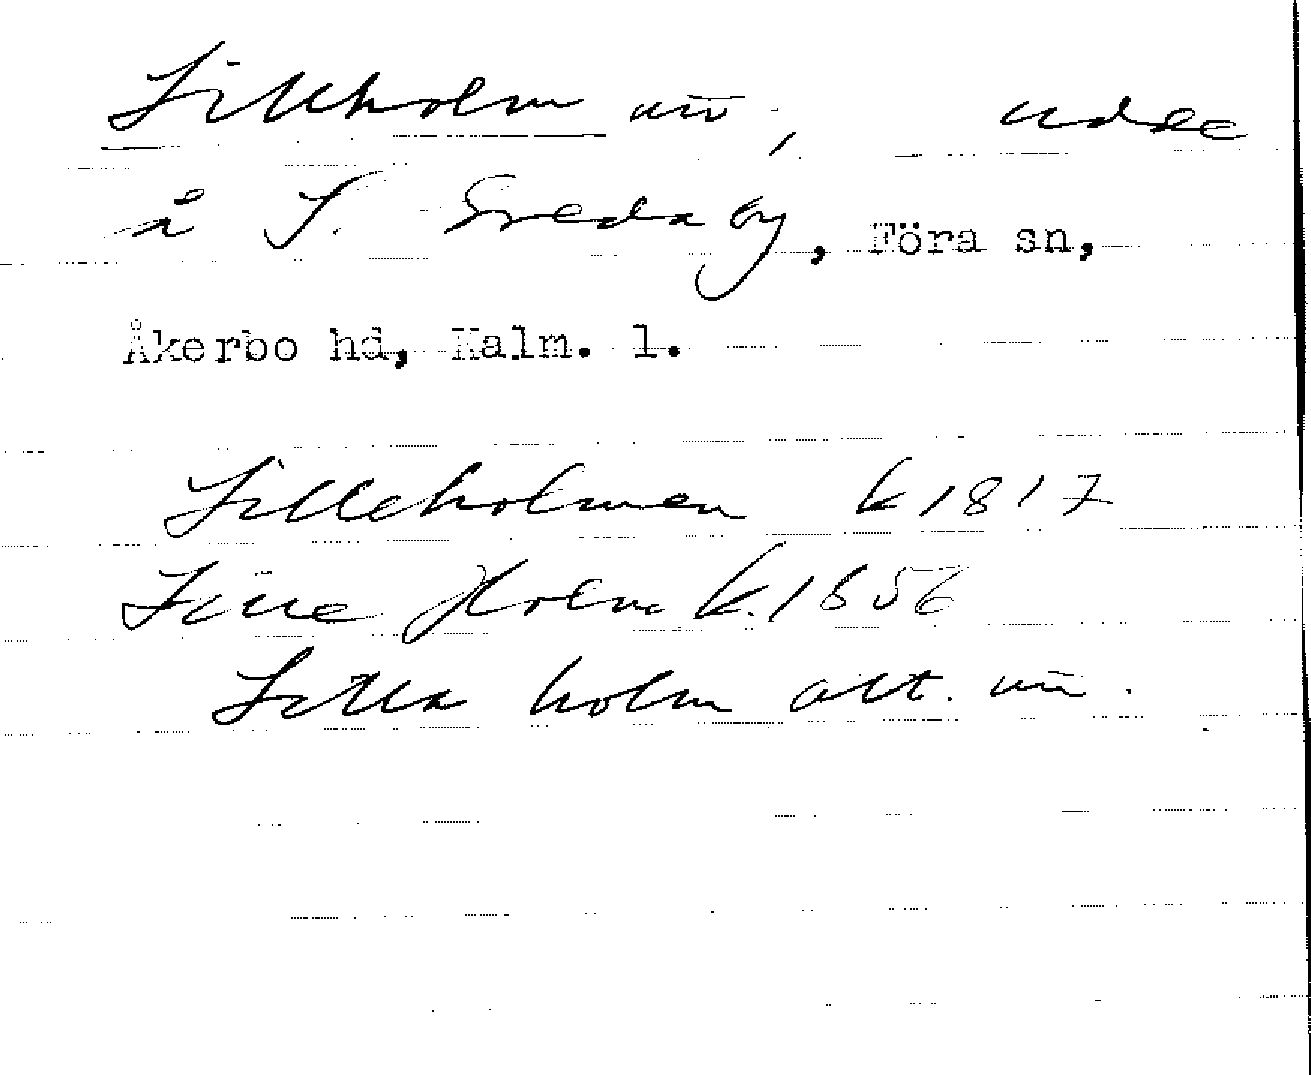 Lillholm un, udde
å S. Greda by, Föra sn,
Åkerbo hd, Kalm. l.
Lilleholmen k 1817
Lille Holm k. 1856
Lilla holm alt. un.